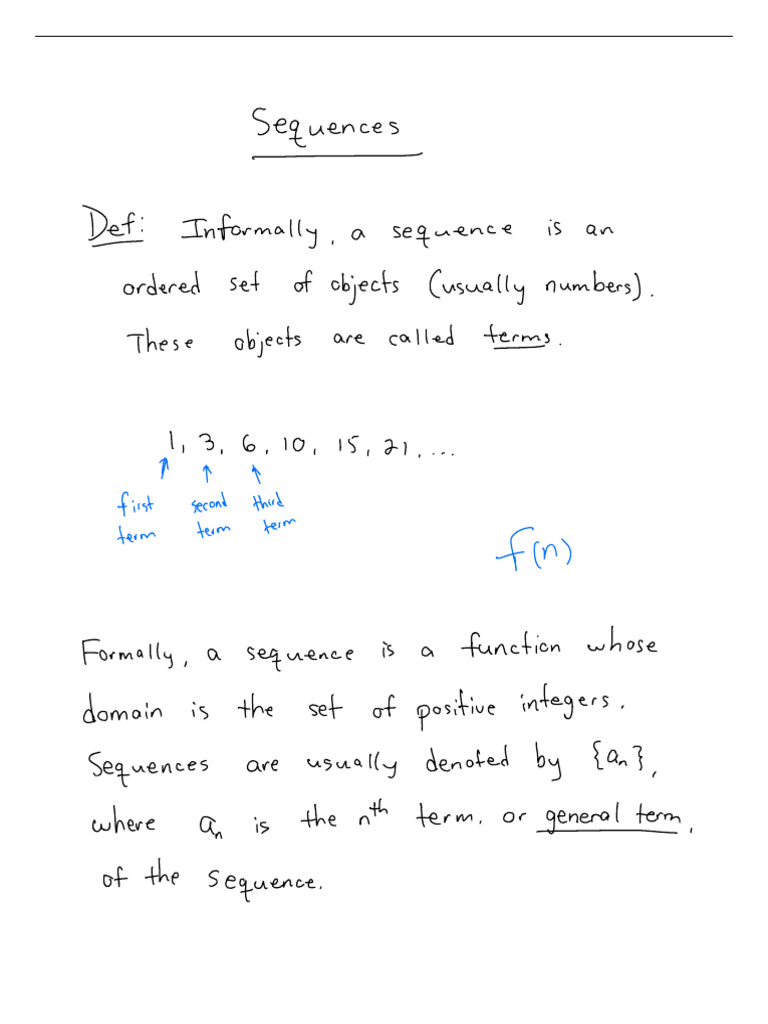 Sequences
Def: Informally, a sequence is an
ordered set of objects (usually numbers).
These objects are called terms.
1, 3, 6, 10, 15, 21, ...
first second third
term term term
f(n)
Formally, a sequence is a function whose
domain is the set of positive integers.
Sequences are usually denoted by {aₙ},
where aₙ is the nᵗʰ term, or general term,
of the sequence.